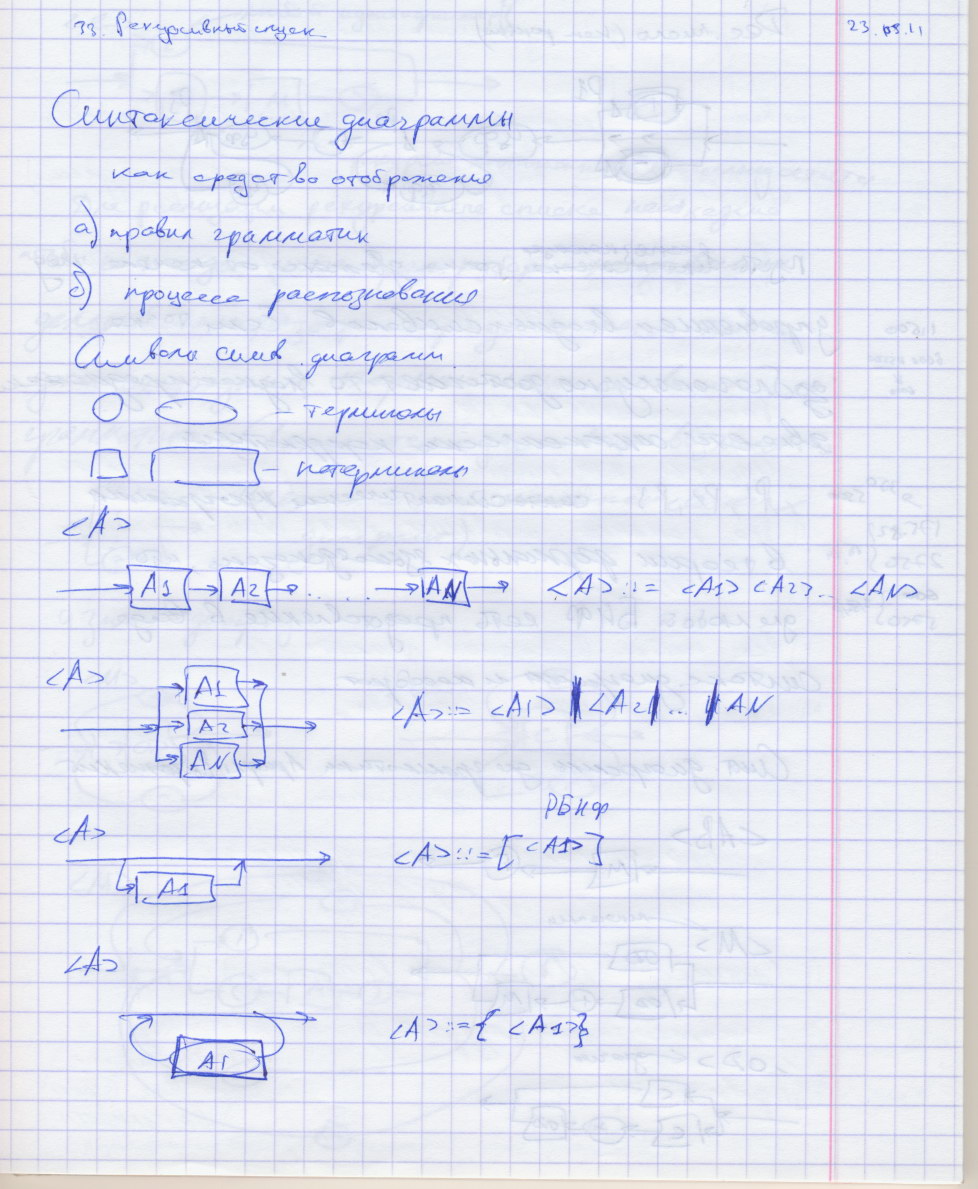 33. Рекурсивный спуск 23.05.11
Синтаксические диаграммы
как средство отображения
а) правил грамматик
б) процесса распознавания
Символы синт. диаграмм
– терминалы
– нетерминалы
<A>
A1 A2 . . . . AN <A>::= <A1> <A2> .. <AN>
<A>
A1
A2
AN
<A>::= <A1> | <A2| ... | AN
РБНФ
<A>
A1
<A>::=[<A1>]
<A>
A1
<A>::={ <A1>}